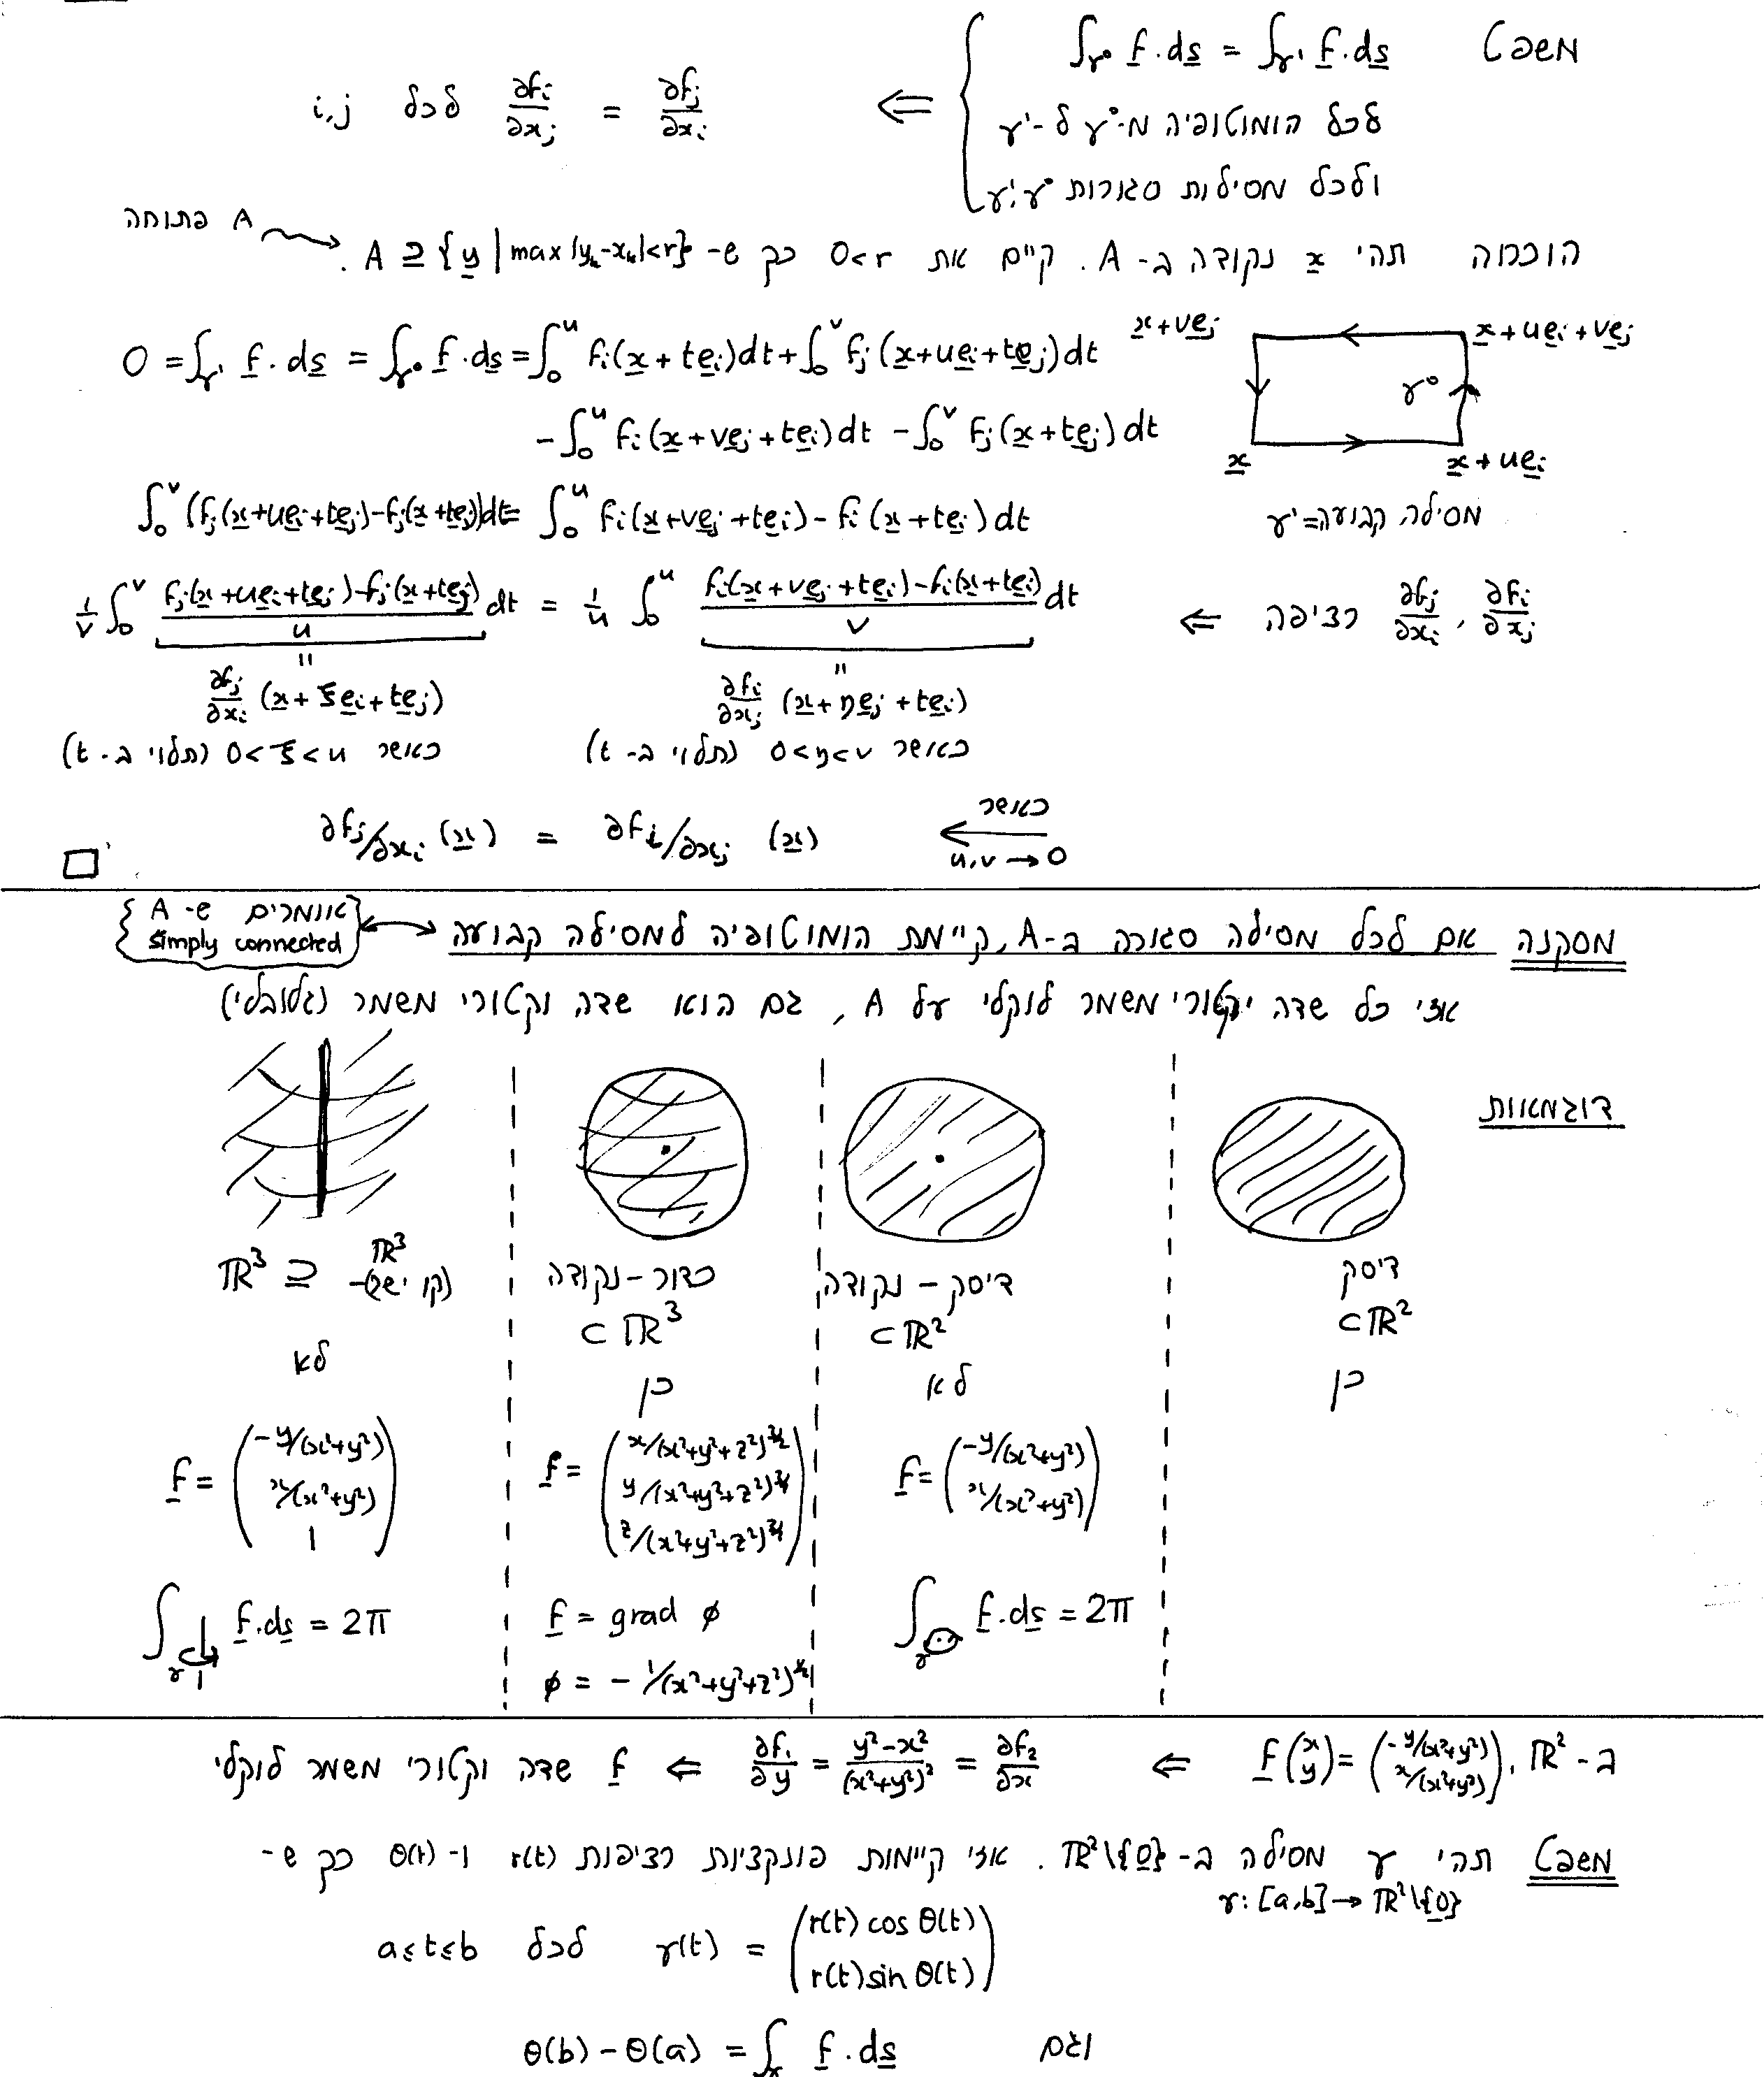 משפט ∫_γ⁰ f.ds = ∫_γ¹ f.ds
לכל הומוטופיה מ-γ⁰ ל-γ¹
ולכל מסילות סגורות γ⁰,γ¹
⇐ ∂fi/∂xj = ∂fj/∂xi לכל i,j
הוכחה תהי x נקודה ב-A. קיים את 0<r כך ש- A ⊇ {y | max|yₖ-xₖ|<r}.
A פתוחה
0 = ∫_γ¹ f.ds = ∫_γ⁰ f.ds = ∫₀ᵘ fi(x+tei)dt + ∫₀ᵛ fj(x+uei+tej)dt
- ∫₀ᵘ fi(x+vej+tei)dt - ∫₀ᵛ fj(x+tej)dt
x+vej x+uei+vej
γ⁰
x x+uei
γ¹=מסילה קבועה
∫₀ᵛ (fj(x+uei+tej)-fj(x+tej))dt = ∫₀ᵘ fi(x+vej+tei)-fi(x+tei)dt
∂fi/∂xj, ∂fj/∂xi רציפה ⇐
1/v ∫₀ᵛ (fj(x+uei+tej)-fj(x+tej))/u dt = 1/u ∫₀ᵘ (fi(x+vej+tei)-fi(x+tei))/v dt
" "
∂fj/∂xi (x+ξei+tej) ∂fi/∂xj (x+ηej+tei)
כאשר 0<ξ<u (תלוי ב-t) כאשר 0<η<v (תלוי ב-t)
כאשר u,v→0
∂fj/∂xi (x) = ∂fi/∂xj (x)
□
מסקנה אם לכל מסילה סגורה ב-A, קיימת הומוטופיה למסילה קבועה
{אומרים ש-A simply connected}
אזי כל שדה וקטורי משמר לוקלי על A, גם הוא שדה וקטורי משמר (גלובלי)
דוגמאות
דיסק
⊂ℝ²
כן
דיסק - נקודה
⊂ℝ²
לא
f = (-y/(x²+y²)
x/(x²+y²))
∫_γ f.ds = 2π
כדור - נקודה
⊂ℝ³
כן
f = (x/(x²+y²+z²)^3/2
y/(x²+y²+z²)^3/2
z/(x²+y²+z²)^3/2)
f = grad φ
φ = -1/(x²+y²+z²)^1/2
ℝ³ ⊇ ℝ³-(קו ישר)
לא
f = (-y/(x²+y²)
x/(x²+y²)
1)
∫_γ f.ds = 2π
ב-ℝ², f(x y) = (-y/(x²+y²) x/(x²+y²)) ⇐ ∂f₁/∂y = (y²-x²)/(x²+y²)² = ∂f₂/∂x ⇐ f שדה וקטורי משמר לוקלי
משפט תהי γ מסילה ב-ℝ²\{0}. אזי קיימות פונקציות רציפות r(t) ו-θ(t) כך ש-
γ:[a,b]→ℝ²\{0}
γ(t) = (r(t)cos θ(t) r(t)sin θ(t)) לכל a≤t≤b
וגם θ(b)-θ(a) = ∫_γ f.ds